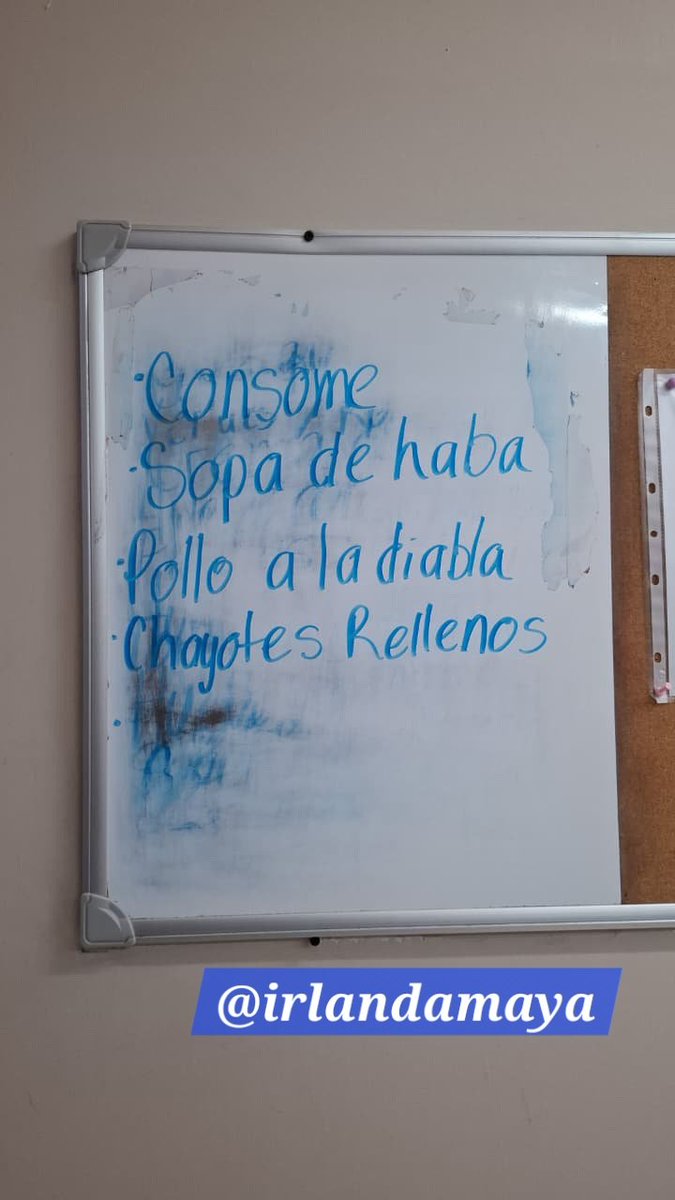 ·Consome
·Sopa de haba
·Pollo a la diabla
·Chayotes Rellenos
@irlandamaya